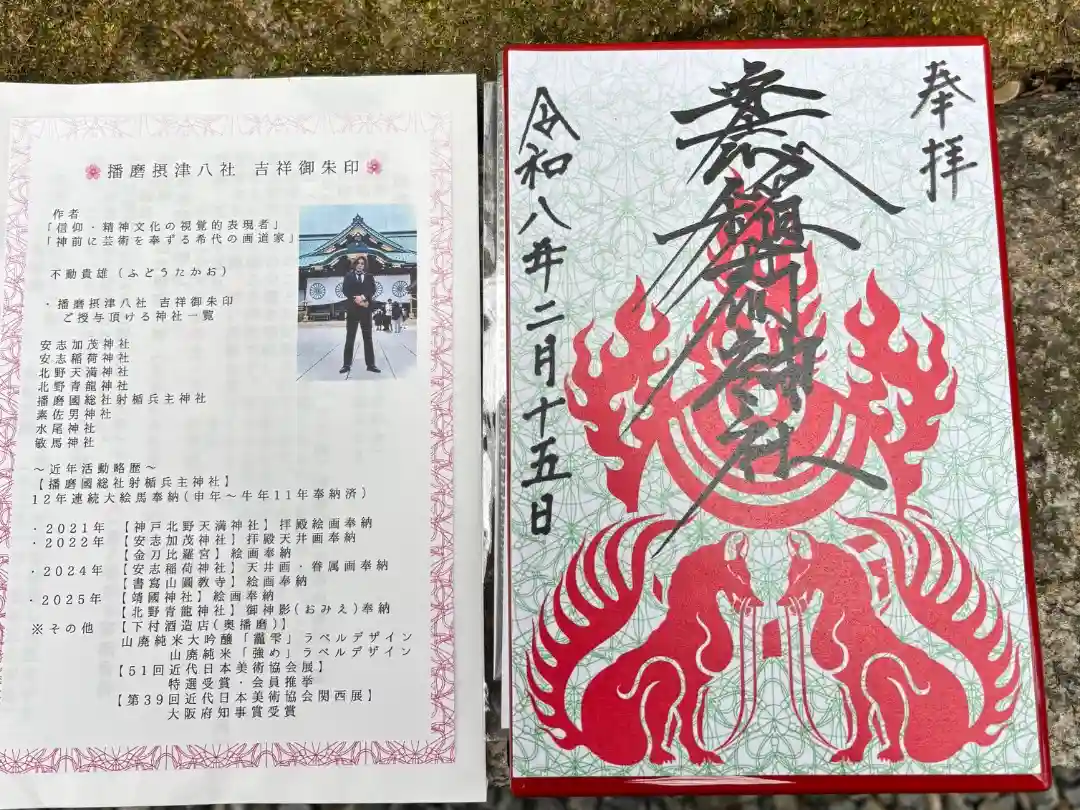 播磨摂津八社 吉祥御朱印
作者
「信仰・精神文化の視覚的表現者」
「神前に芸術を奉ずる希代の画道家」
不動貴雄(ふどうたかお)
・播磨摂津八社 吉祥御朱印
ご授与頂ける神社一覧
安志加茂神社
安志稲荷神社
北野天満神社
北野青龍神社
播磨國総社射楯兵主神社
素佐男神社
水尾神社
敏馬神社
～近年活動略歴～
【播磨國総社射楯兵主神社】
12年連続大絵馬奉納(申年～牛年11年奉納済)
・2021年 【神戸北野天満神社】拝殿絵画奉納
・2022年 【安志加茂神社】拝殿天井画奉納
【金刀比羅宮】絵画奉納
・2024年 【安志稲荷神社】天井画・眷属画奉納
【書寫山圓教寺】絵画奉納
・2025年 【靖國神社】絵画奉納
【北野青龍神社】御神影(おみえ)奉納
※その他 【下村酒造店(奥播磨)】
山廃純米大吟醸「龗雫」ラベルデザイン
山廃純米「強め」ラベルデザイン
【51回近代日本美術協会展】
特選受賞・会員推挙
【第39回近代日本美術協会関西展】
大阪府知事賞受賞
奉拝
神社
令和八年二月十五日